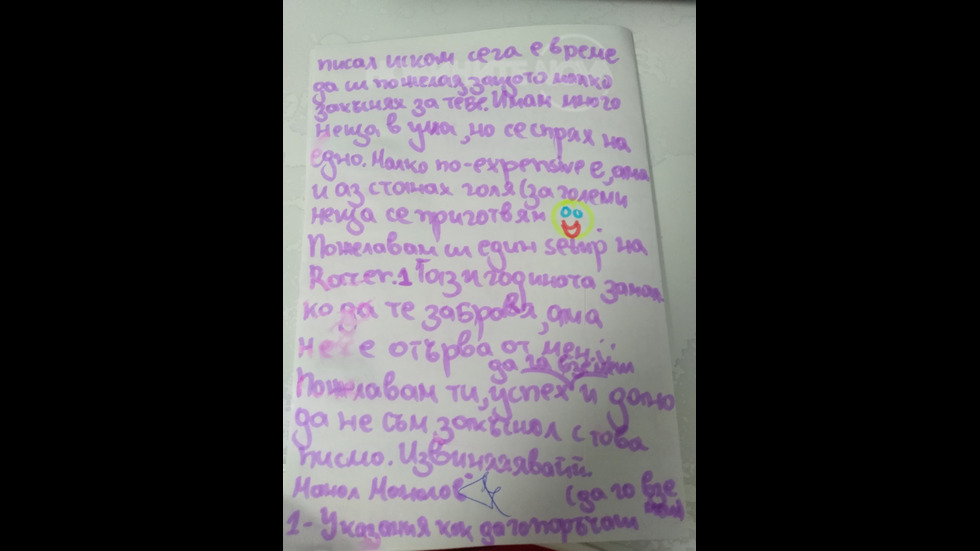 писал иском сега е време
да си пожелая защото малко
закъснях за тебе. Имам много
неща в ума, но се спрях на
едно. Малко по-expensive е, ама
и аз станах голям (за големи
неща се приготвям
Пожелавам си един setup на
Razer.1 Таз и годината замал
ко да те забравя, ама
не се отърва от мен.
да го вземеш
Пожелавам ти, успех и дано
да не съм закъснял с това
писмо. Извиняяявайй.
Манол Манолов
(да го взе
1- Указания как да го поръчаш